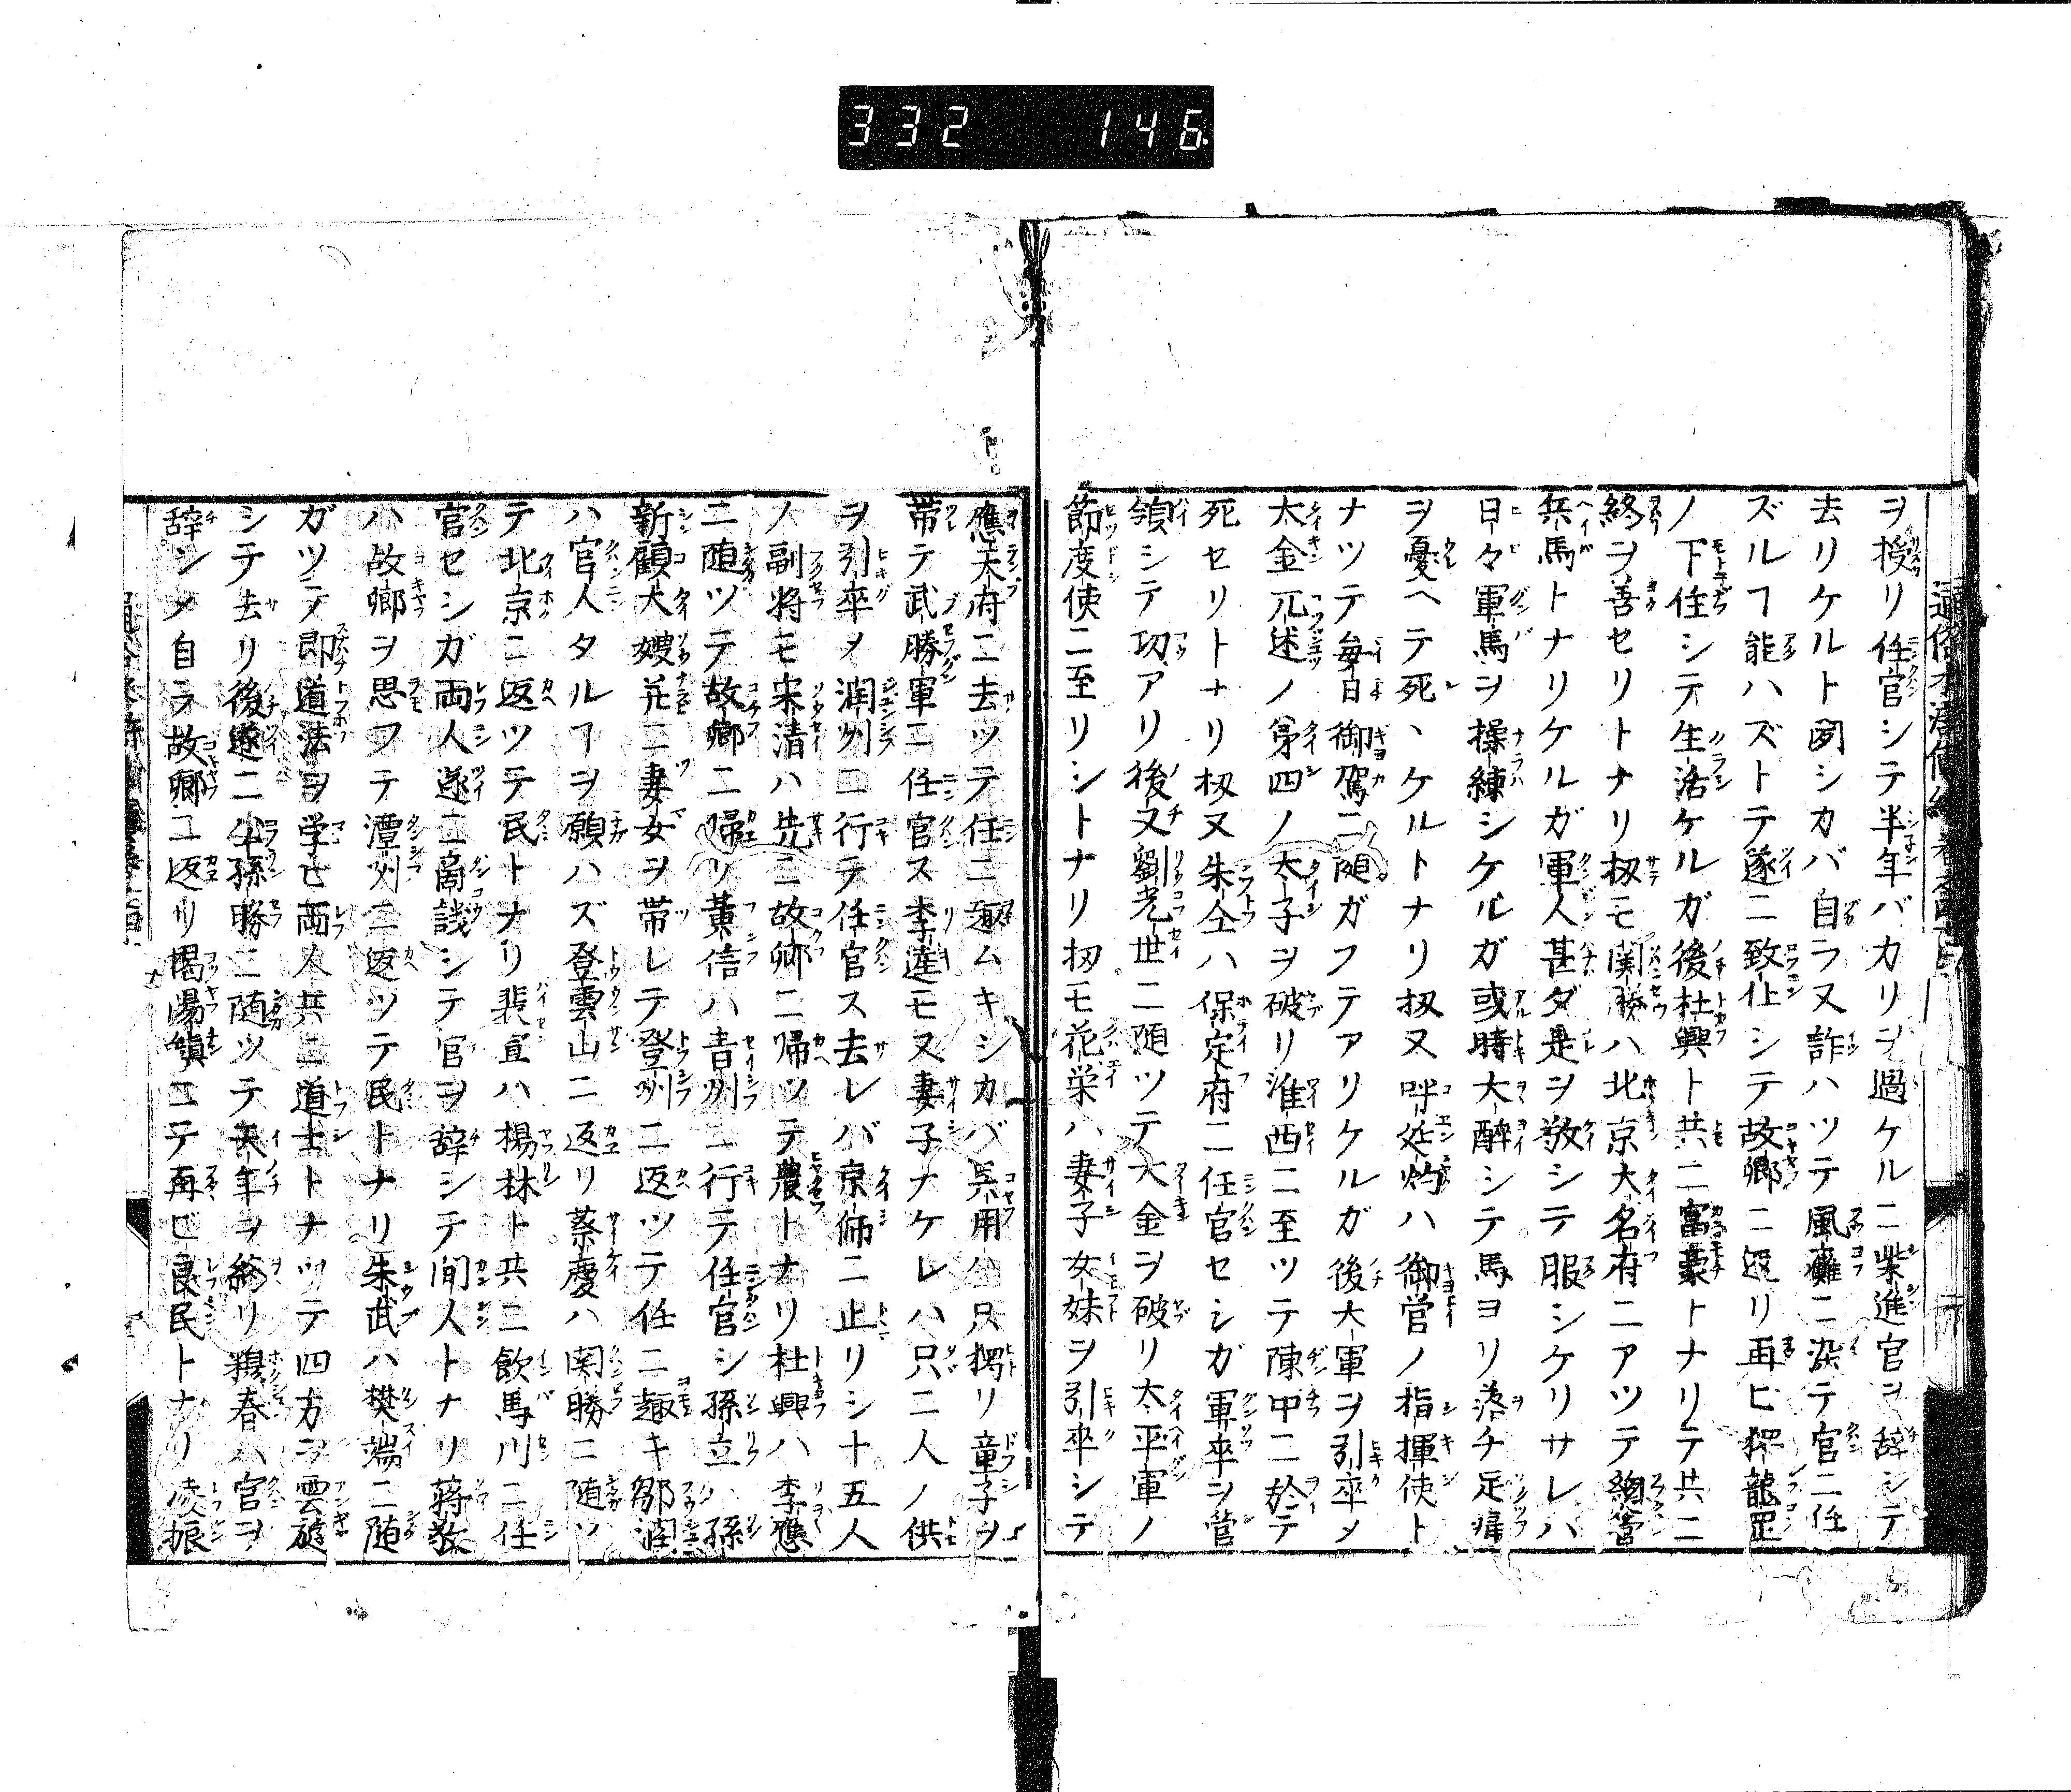 332 146
ヲ授リ任官シテ半年バカリヲ過ケルニ柴進官ヲ辞シテ
去リケルト聞シカバ自ラ又詐ハツテ風癱ニ染テ官ニ任
ズルヿ能ハズトテ遂ニ致仕シテ故郷ニ返リ再ヒ獨龍罡
ノ下住シテ生活ケルガ後杜興ト共ニ富豪トナリテ共ニ
終ヲ善セリトナリ扨モ関勝ハ北京大名府ニアツテ総管
兵馬トナリケルガ軍人甚ダ是ヲ敬シテ服シケリサレハ
日々軍馬ヲ操練シケルガ或時大醉シテ馬ヨリ落チ足痛
ヲ憂ヘテ死ヽケルトナリ扨又呼延灼ハ御営ノ指揮使ト
ナツテ毎日御駕ニ随ガフテアリケルガ後大軍ヲ引卒メ
大金兀述ノ第四ノ太子ヲ破リ淮西ニ至ツテ陳中ニ於テ
死セリトナリ扨又朱仝ハ保定府ニ任官セシガ軍卒ヲ管
領シテ功アリ後又劉光世ニ随ツテ大金ヲ破リ太平軍ノ
節度使ニ至リシトナリ扨モ花栄ハ妻子女妹ヲ引卒シテ
應天府ニ去ツテ任ニ趣ムキシカバ呉用ハ只獨リ童子ヲ
帯テ武勝軍ニ任官ス李逵モ又妻子ナケレハ只二人ノ供
ヲ引卒メ潤州ニ行テ任官ス去レバ京師ニ止リシ十五人
ノ副将モ宋清ハ先ニ故郷ニ帰ツテ農トナリ杜興ハ李應
ニ随ツテ故郷ニ帰リ黄信ハ青州ニ行テ任官シ孫立ハ孫
新顧大嫂并ニ妻女ヲ帯レテ登州ニ返ツテ任ニ趣キ鄒潤
ハ官人タルヿヲ願ハズ登雲山ニ返リ蔡慶ハ関勝ニ随ツ
テ北京ニ返ツテ民トナリ裴宣ハ楊林ト共ニ飲馬川ニ任
官セシガ両人遂ニ商議シテ官ヲ辞シテ間人トナリ蒋敬
ハ故郷ヲ思フテ潭州ニ返ツテ民トナリ朱武ハ樊端ニ随
ガツテ即道法ヲ学ヒ両人共ニ道士トナツテ四方ニ雲遊
シテ去リ後遂ニ公孫勝ニ随ツテ天年ヲ終リ穆春ハ官ヲ
辞シメ自ラ故郷ニ返リ掲陽鎮ニテ再ビ良民トナリ凌振